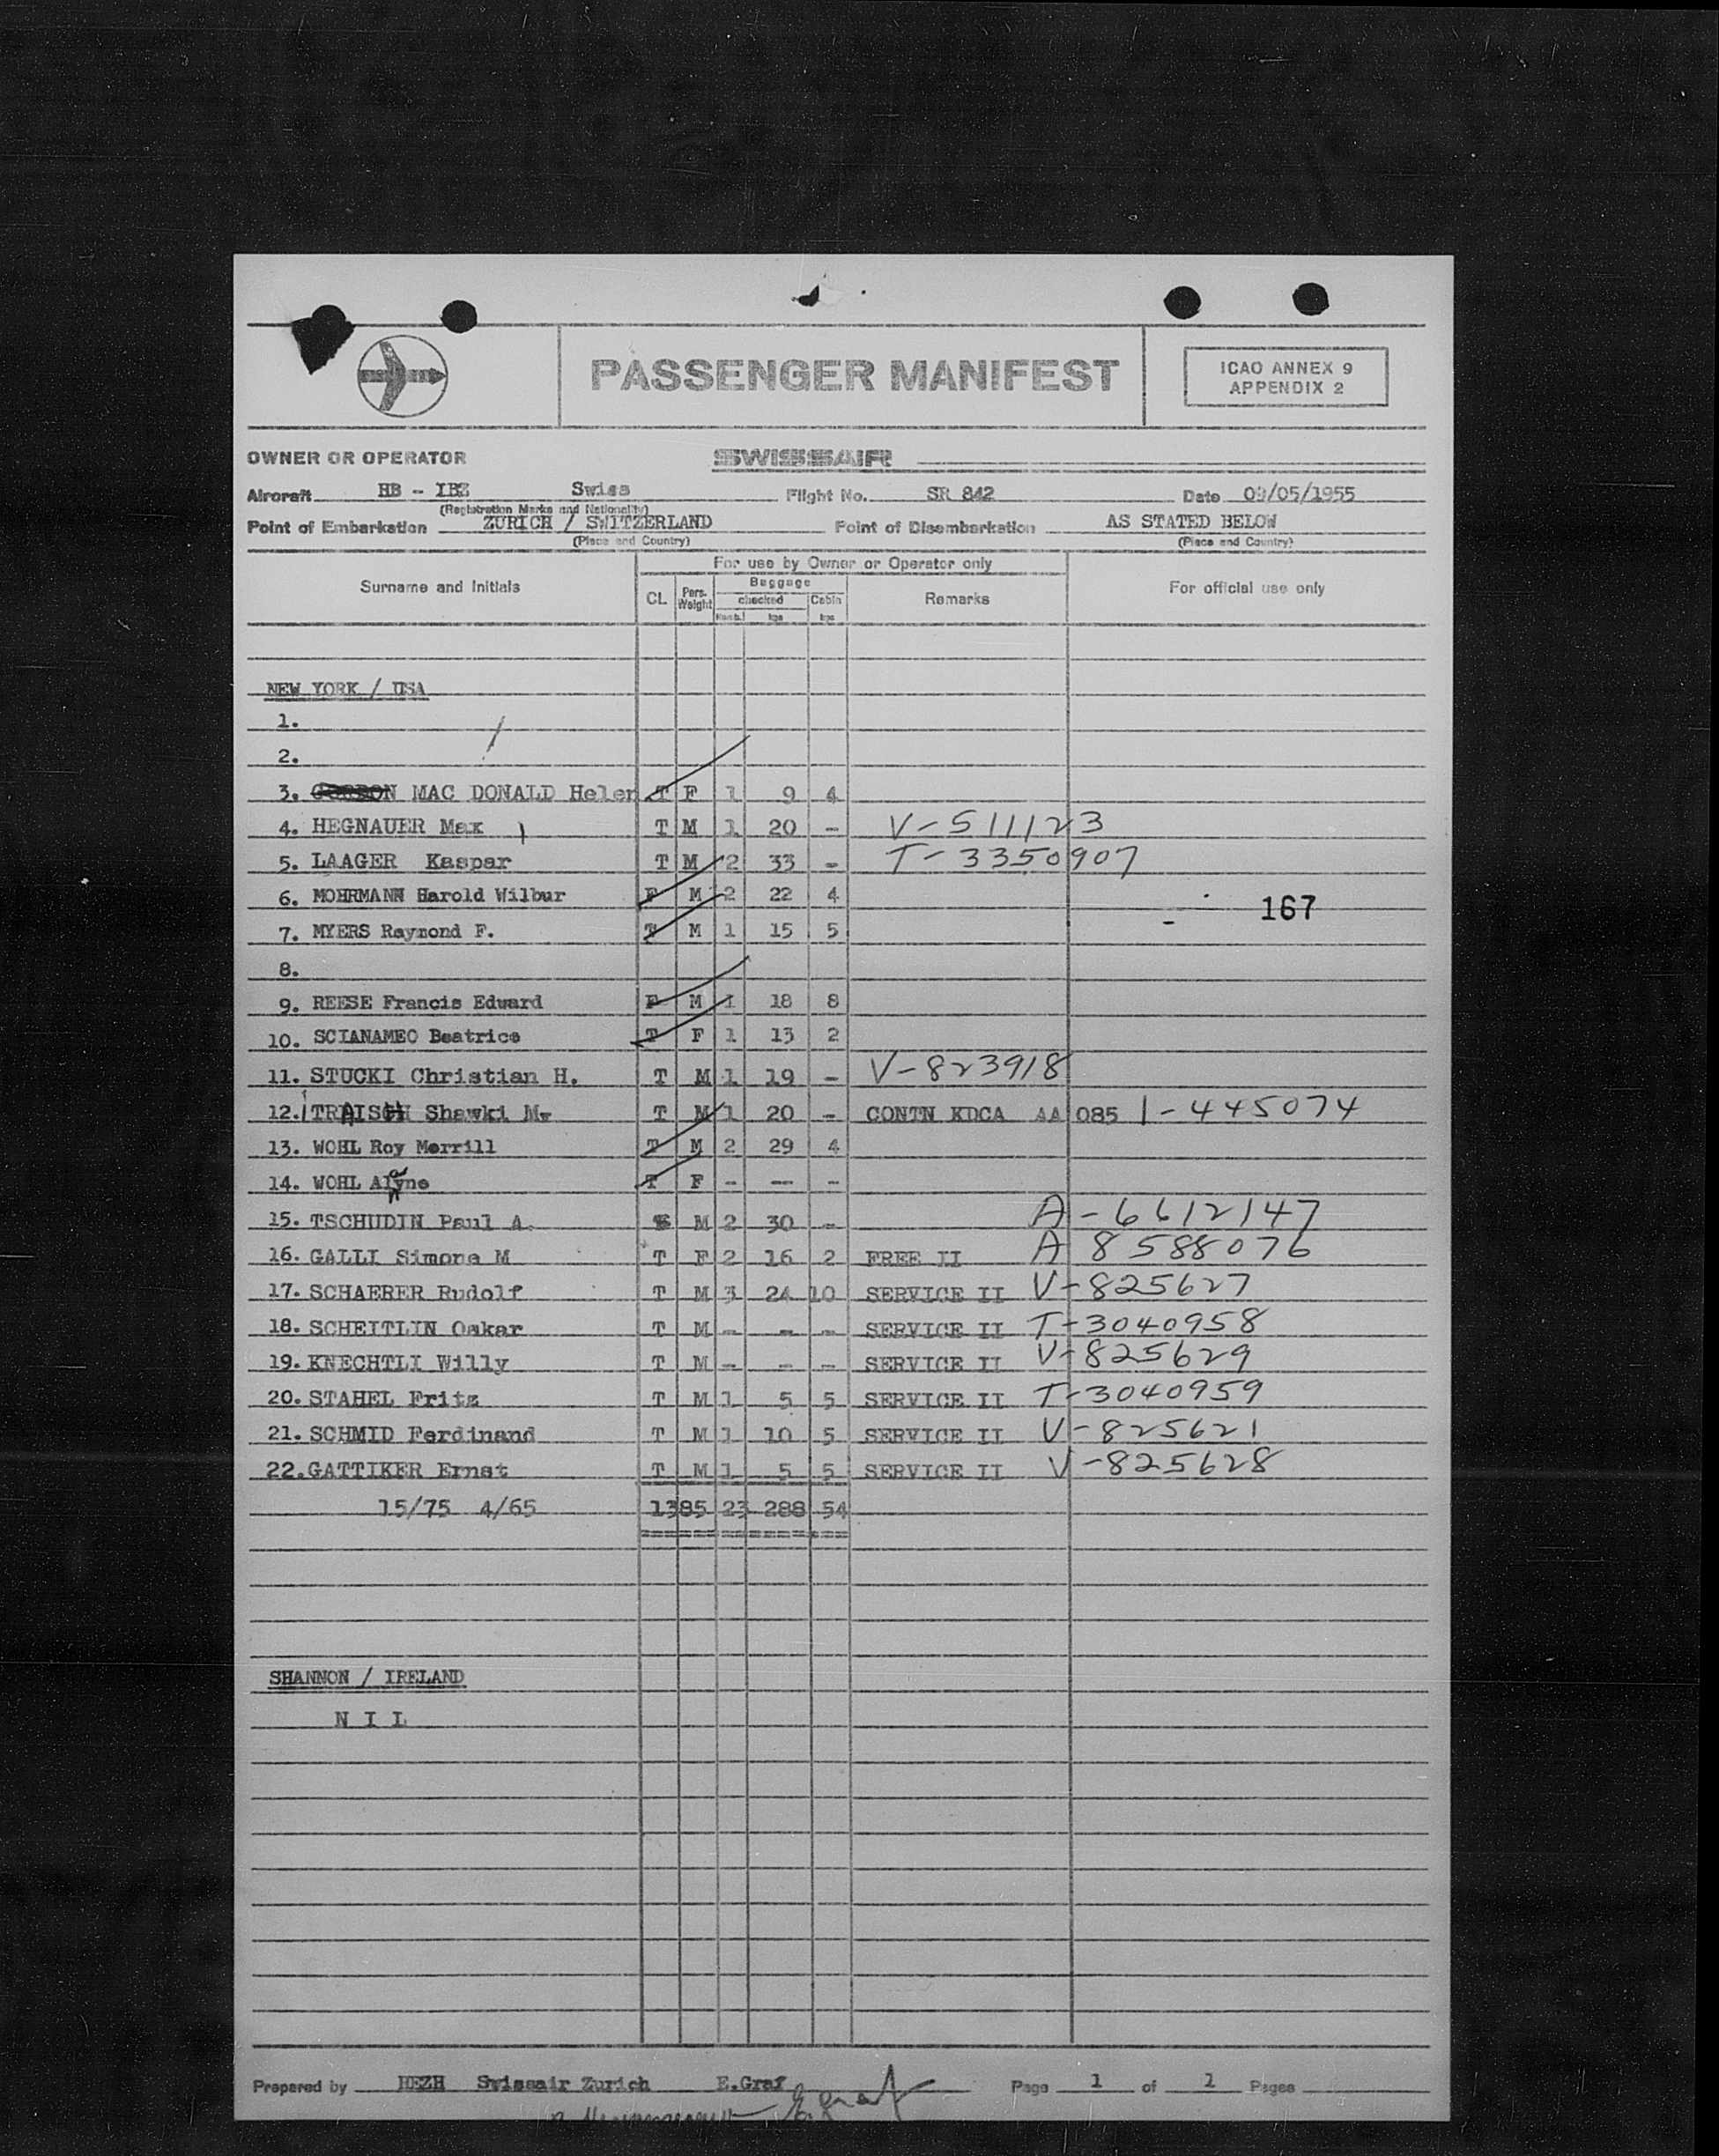 PASSENGER MANIFEST
ICAO ANNEX 9
APPENDIX 2
OWNER OR OPERATOR SWISSAIR
Aircraft HB - IBZ Swiss Flight No. SR 842 Date 09/05/1955
(Registration Marks and Nationality)
Point of Embarkation ZURICH / SWITZERLAND Point of Disembarkation AS STATED BELOW
(Place and Country) (Place and Country)
For use by Owner or Operator only
Surname and Initials CL Pers. Weight Baggage checked Cabin Remarks For official use only
Numb. kgs kgs
NEW YORK / USA
1.
2.
3. MAC DONALD Helen T F 1 9 4
4. HEGNAUER Max T M 1 20 - V-511123
5. LAAGER Kaspar T M 2 33 - T-3350907
6. MOHRMANN Harold Wilbur F M 2 22 4
167
7. MYERS Raymond F. T M 1 15 5
8.
9. REESE Francis Edward F M 1 18 8
10. SCIANAMEO Beatrice T F 1 13 2
11. STUCKI Christian H. T M 1 19 - V-823918
12. Shawki M. T M 1 20 - CONTN KDCA AA 085 1-445074
13. WOHL Roy Merrill T M 2 29 4
14. WOHL T F - -- -
15. TSCHUDIN Paul A. M 2 30 - A-6612147
16. GALLI Simone M T F 2 16 2 FREE II A 8588076
17. SCHAERER Rudolf T M 3 24 10 SERVICE II V-825627
18. SCHEITLIN Oskar T M - - - SERVICE II T-3040958
19. KNECHTLI Willy T M - - - SERVICE II V-825629
20. STAHEL Fritz T M 1 5 5 SERVICE II T-3040959
21. SCHMID Ferdinand T M 1 10 5 SERVICE II V-825621
22. GATTIKER Ernst T M 1 5 5 SERVICE II V-825628
15/75 4/65 1385 23 288 54
SHANNON / IRELAND
N I L
Prepared by HEZH Swissair Zurich E.Graf Page 1 of 1 Pages
E.Graf